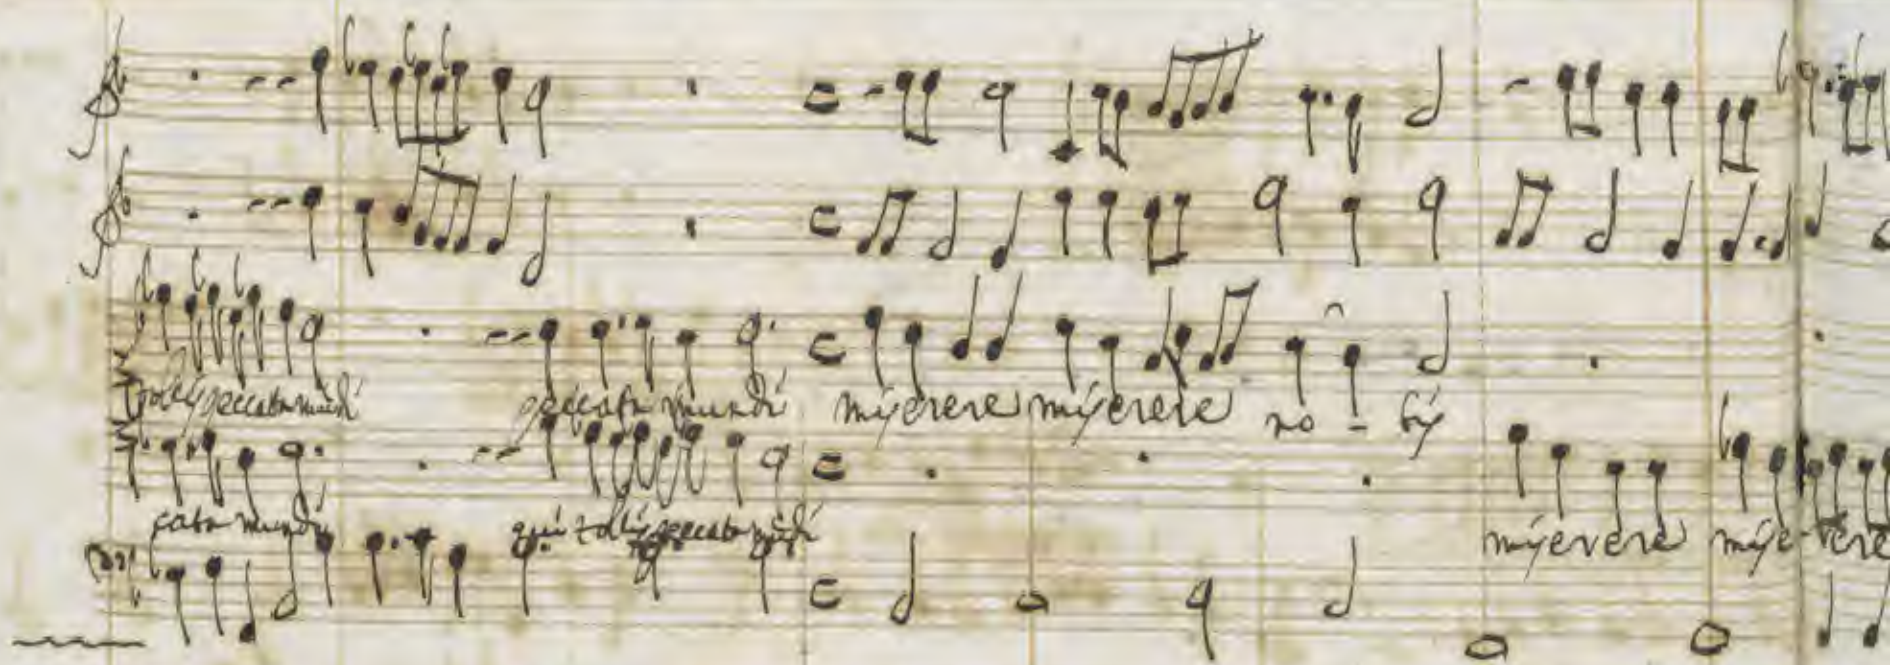 tollÿ peccata mundi peccata mundi mÿerere mÿerere no - bÿ
cata mundi qui tollÿ peccata mũdi mÿerere mÿe-rere